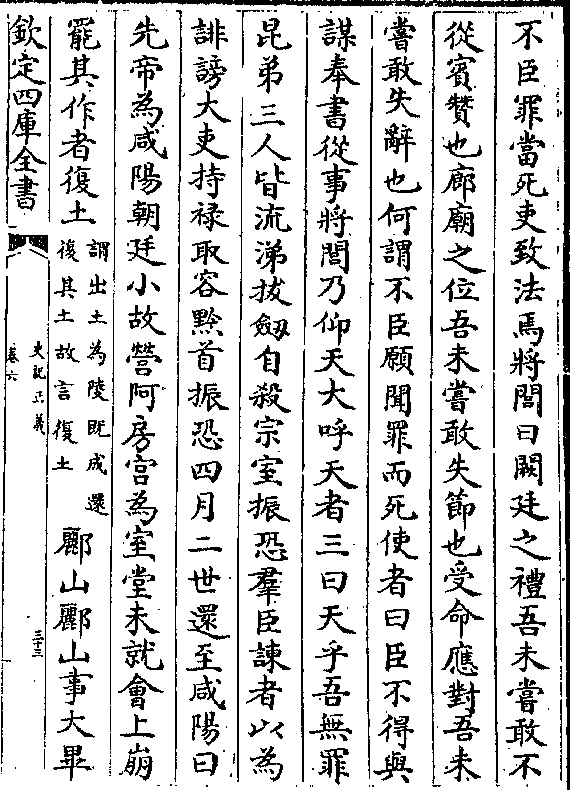 不臣罪當死吏致法焉將閭曰闕廷之禮吾未嘗敢不
從賓贊也廊廟之位吾未嘗敢失節也受命應對吾未
嘗敢失辭也何謂不臣願聞罪而死使者曰臣不得與
謀奉書從事將閭乃仰天大呼天者三曰天乎吾無罪
昆弟三人皆流涕拔劔自殺宗室振恐羣臣諫者以為
誹謗大吏持禄取容黔首振恐四月二世還至咸陽曰
先帝為咸陽朝廷小故營阿房宫為室堂未就會上崩
罷其作者復土謂出土為陵既成還復其土故言復土酈山酈山事大畢
欽定四庫全書
史記正義
卷六
三十三